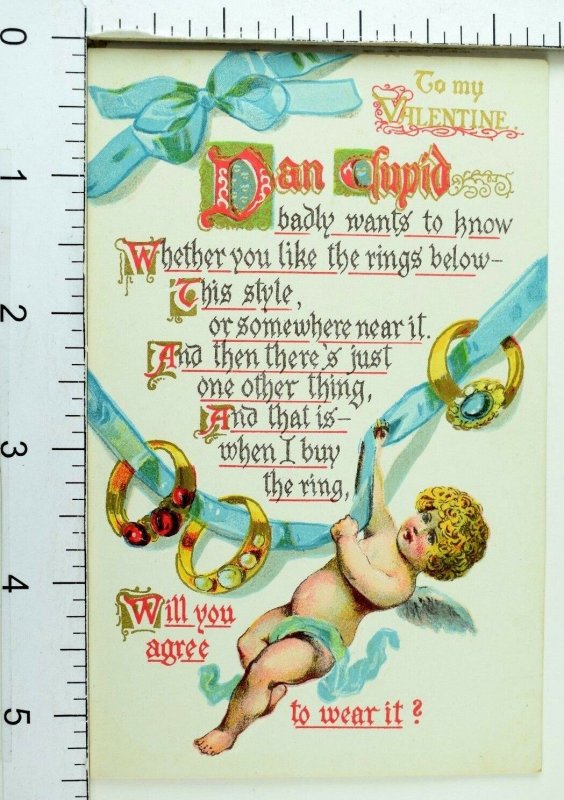 To my
VALENTINE.
Dan Cupid
badly wants to know
Whether you like the rings below—
This style,
or somewhere near it.
And then there's just
one other thing,
And that is—
when I buy
the ring,
Will you
agree
to wear it?
0
1
2
3
4
5